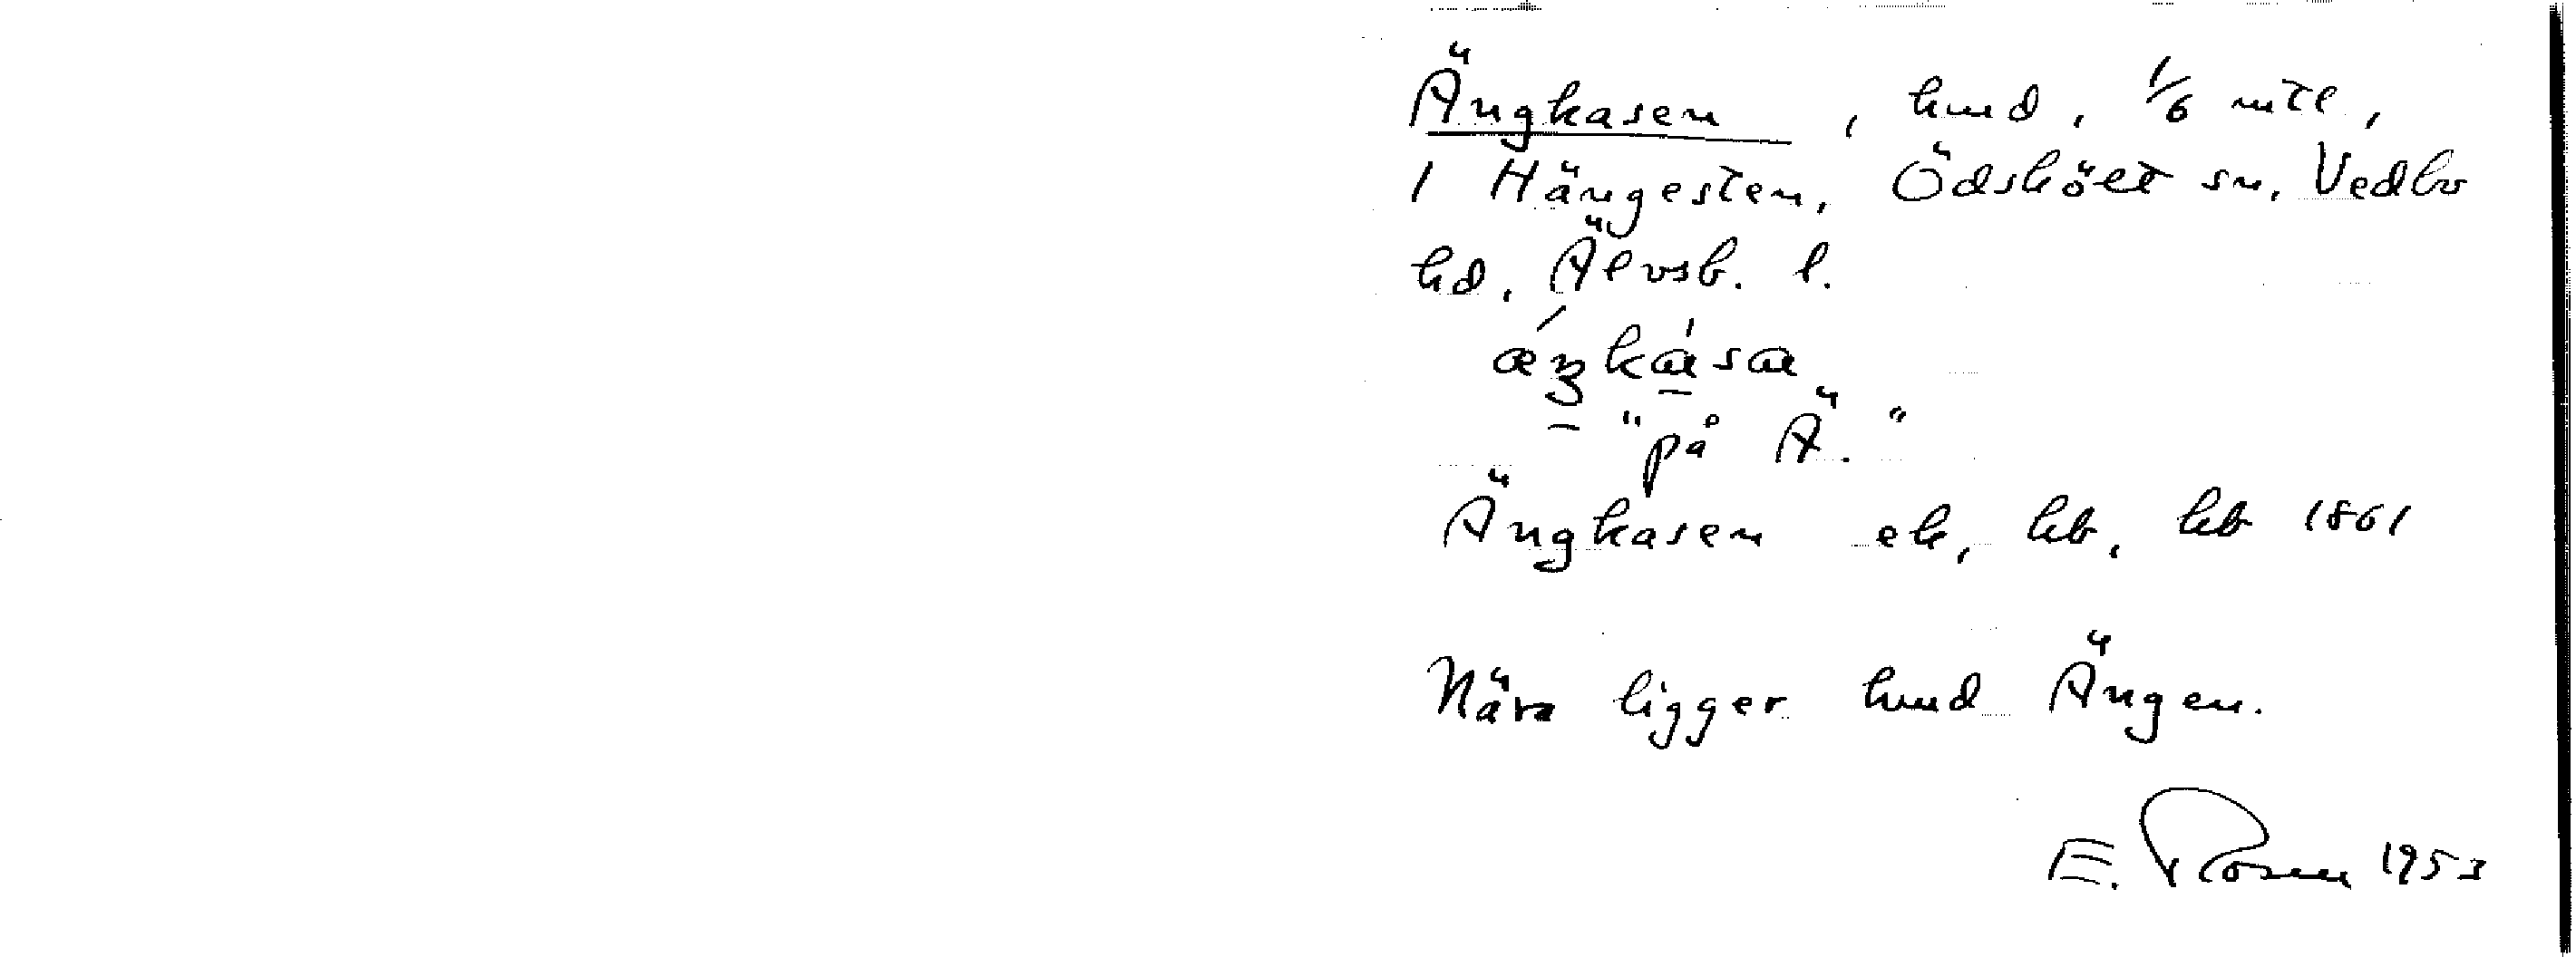 Ängkasen, hmd, 1/6 mtl,
1 Hängesten, Ödskölt sn, Vedbo
hd, Älvsb. l.
"på Ä."
Ängkasen ek, kb, hb 1861
Nära ligger hmd Ängen.
E. Rosen 1953